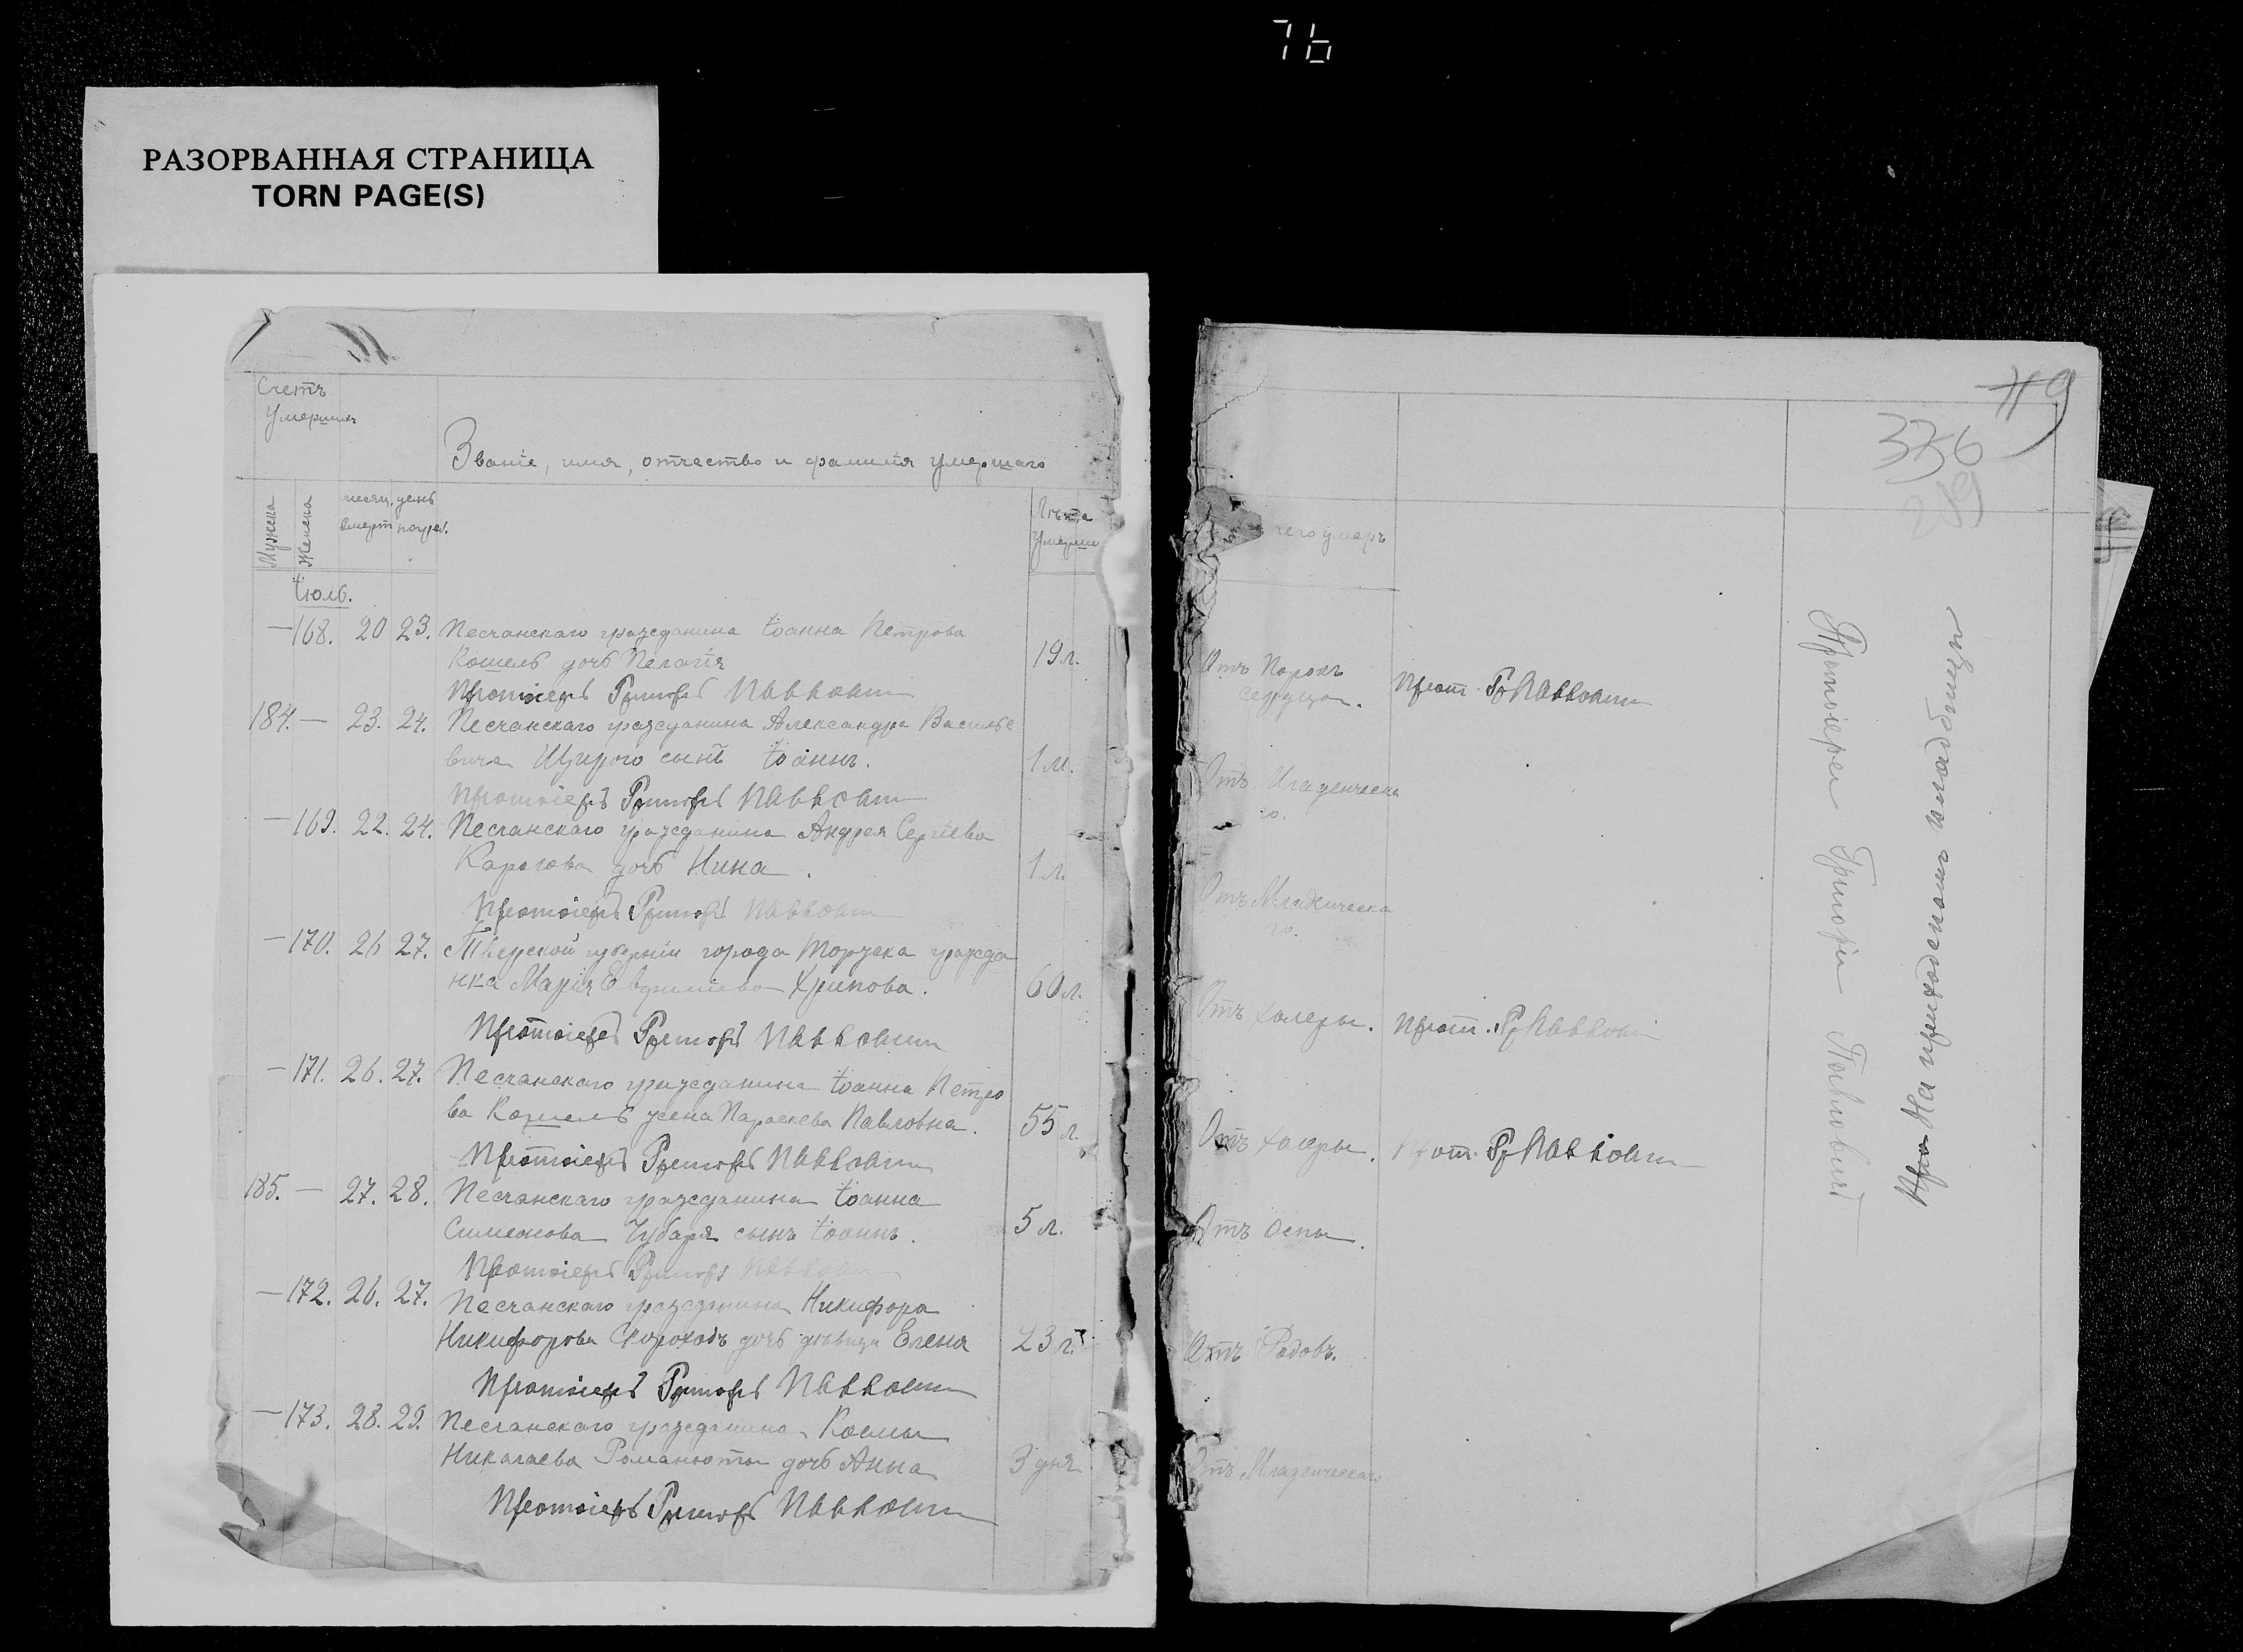 76
РАЗОРВАННАЯ СТРАНИЦА
TORN PAGE(S)
Счетъ
Умерших
Званіе, имя, отчество и фамилія умершаго
Мужска
Женска
месяц, день
смерт погреб.
Лѣта
умерш
Іюль.
— 168. 20 23. Песчанскаго гражданина Іоанна Петрова
Кошель дочь Пелагія 19 л.
Протоіерей Григорій Павловичъ
184. — 23. 24. Песчанскаго гражданина Александра Василье
вича Щирого сынъ Іоаннъ. 1 м.
Протоіерей Григорій Павловичъ
— 169. 22. 24. Песчанскаго гражданина Андрея Сергіева
дочь Нина. 1 л.
Протоіерей Григорій Павловичъ
— 170. 26 27. Тверской губерніи города Торжска гражда
нка Марія Евфиміева Хрипова. 60 л.
Протоіерей Григорій Павловичъ
— 171. 26. 27. Песчанскаго гражданина Іоанна Петро
ва Кошель жена Параскева Павловна. 55 л.
Протоіерей Григорій Павловичъ
185. — 27. 28. Песчанскаго гражданина Іоанна
Симеонова Чубаря сынъ Іоаннъ. 5 л.
Протоіерей Григорій Павловичъ
— 172. 26. 27. Песчанскаго гражданина Никифора
Никифорова Скороходъ дочь дѣвица Елена 23 г.
Протоіерей Григорій Павловичъ
— 173. 28. 29. Песчанскаго гражданина Космы
Николаева Романюты дочь Анна 3 дня
Протоіерей Григорій Павловичъ
336
239
чего умеръ
Отъ Порокъ
сердца. Прот. Гр Павловичъ
Отъ Младенческа
го.
Отъ Младенческа
го.
Отъ холеры. Прот. Гр Павловичъ
Отъ холеры. Прот. Гр Павловичъ
Отъ Оспы.
Отъ Родовъ.
Отъ Младенческаго
Протоіерей Григорій Павловичъ
На приходскомъ кладбищѣ